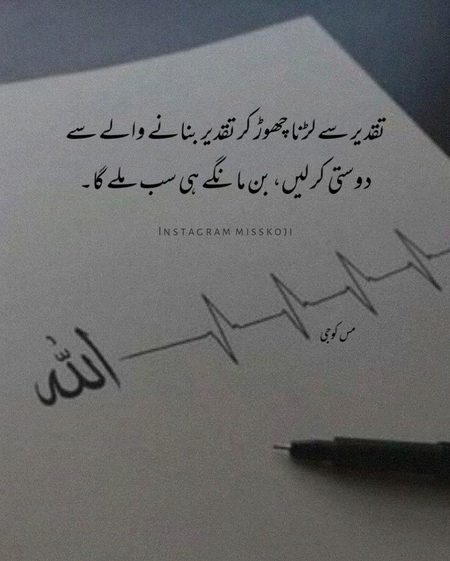 تقدیر سے لڑنا چھوڑ کر تقدیر بنانے والے سے
دوستی کر لیں، بن مانگے ہی سب ملے گا۔
INSTAGRAM MISSKOJI
مس کوجی
اللّٰه